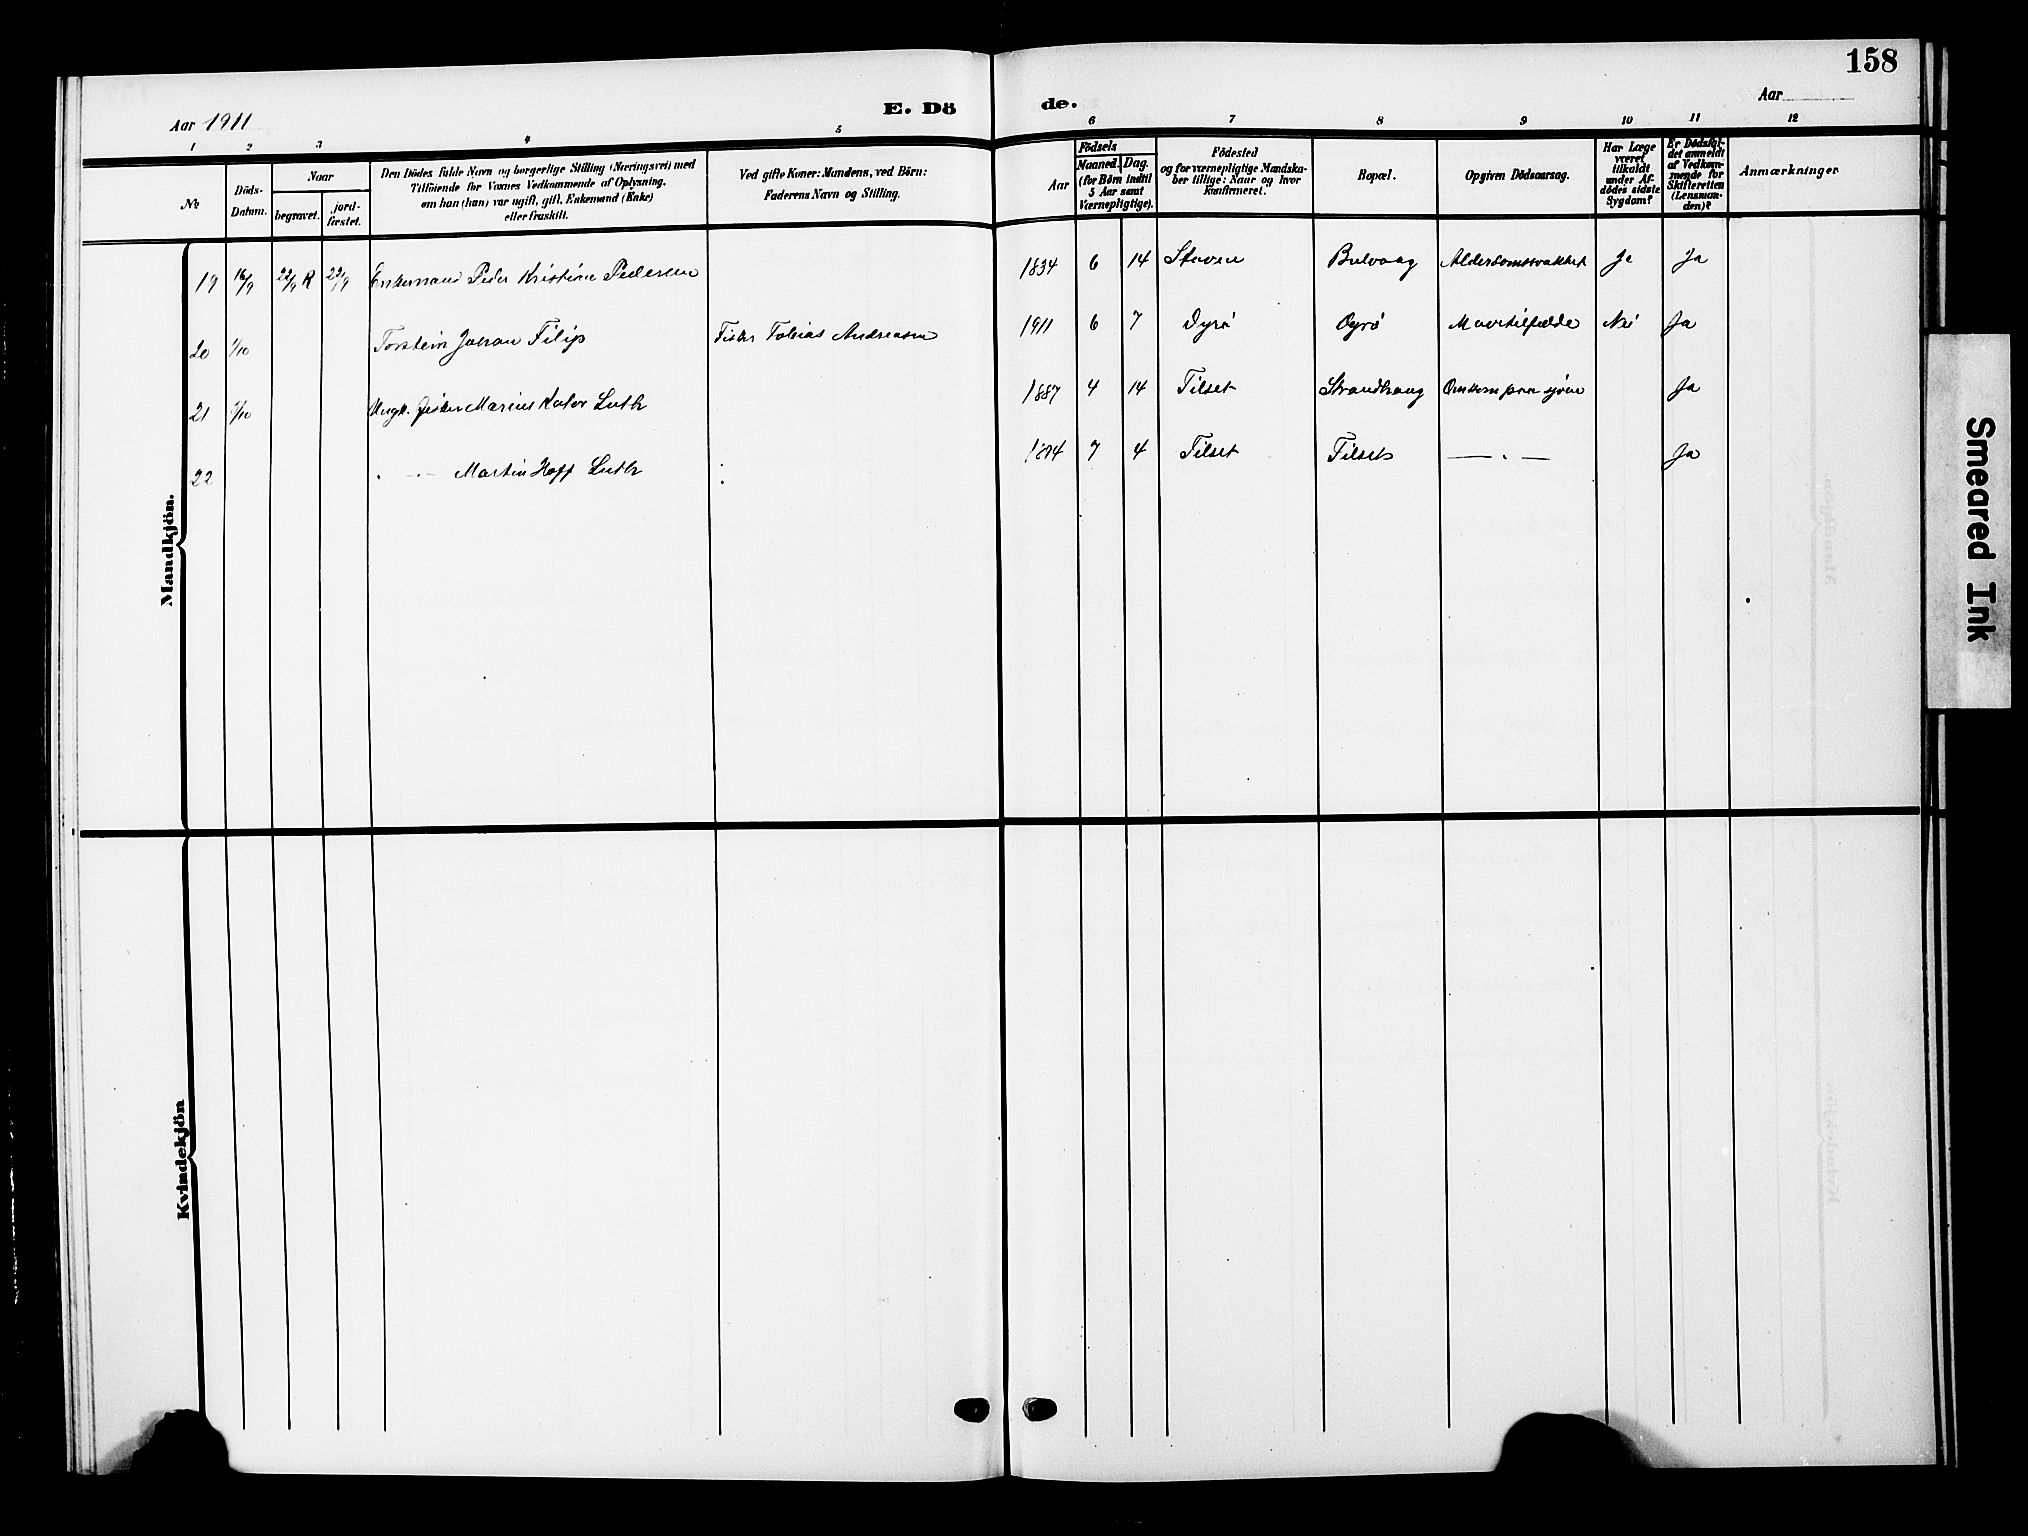 158
Aar 1911
E. Dö
de.
Aar
1 2 3 4 5 6 7 8 9 10 11 12
№
Döds-
Datum.
Naar
begravet.
jord-
fæstet.
Den Dödes fulde Navn og borgerlige Stilling (Næringsvei) med
Tilföiende for Voxnes Vedkommende af Oplysning,
om han (hun) var ugift, gift, Enkemand (Enke)
eller fraskilt.
Ved gifte Koner: Mandens, ved Börn:
Faderens Navn og Stilling.
Aar
Födsels
Maaned. Dag.
(for Börn indtil
5 Aar samt
Værnepligtige).
Födested
og for værnepligtige Mandska-
ber tillige: Naar og hvor
Konfirmeret.
Bopæl.
Opgiven Dödsaarsag.
Har Læge
været
tilkaldt
under Af-
dödes sidste
Sygdom?
Er Dödsfal-
det anmeldt
af Vedkom-
mende for
Skifteretten
(Lensman-
den)?
Anmærkninger
Mandkjön.
19 16/9 22/9 R 22/9 Enkemand Peder Kristian Pedersen 1834 6 14 Staven Bulvaag Alderdomssvakhet Ja Ja
20 1/10 Torstein Johan Filip Fisker Tobias Andreasen 1911 6 7 Dyrö Oyrö Mavetilfælde Nei Ja
21 /10 Ungk. fisker Marius Luth 1887 4 14 Tilset Strandhaug Omkom paa sjöen Ja
22 " —"— Martin Hoff Luth : 4 Tilset Tilset —"— Ja
Kvindekjön
Smeared Ink